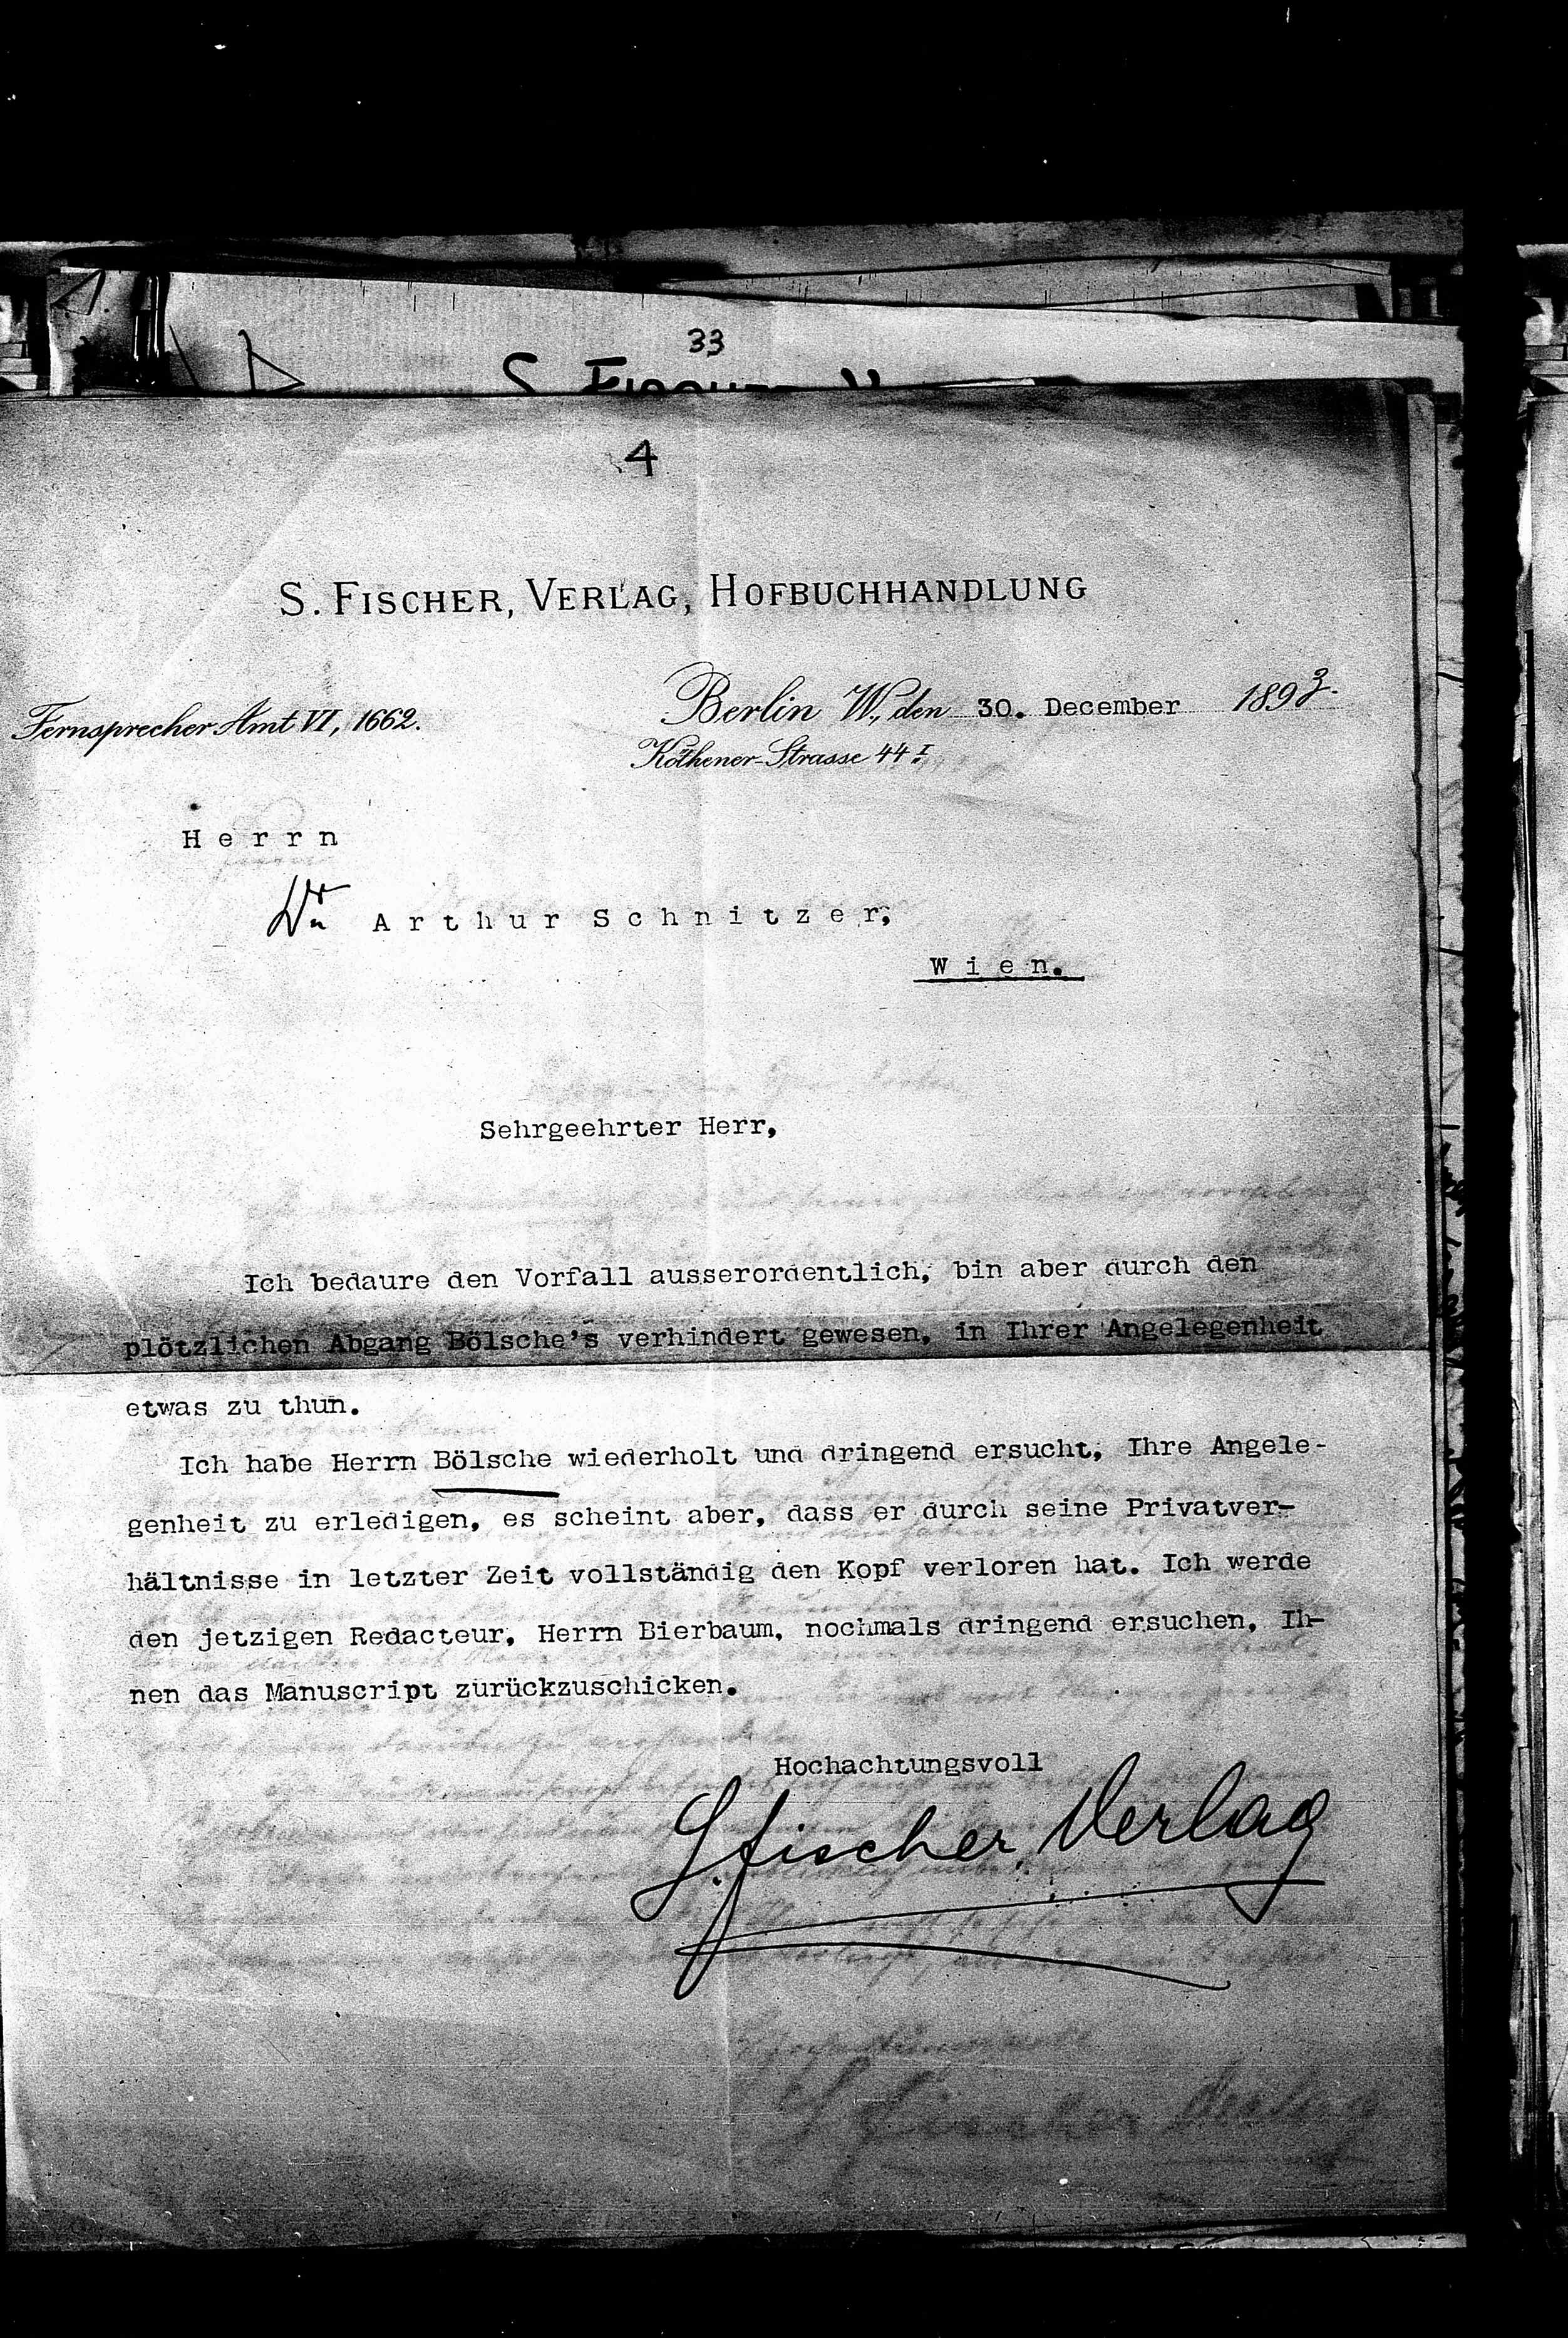 33
4
S. FISCHER, VERLAG, HOFBUCHHANDLUNG
Fernsprecher Amt VI, 1662.
Berlin W., den 30. December 1893.
Köthener-Strasse 44 I.
Herrn
Dr Arthur Schnitzer,
Wien.
Sehrgeehrter Herr,
Ich bedaure den Vorfall ausserordentlich, bin aber durch den
plötzlichen Abgang Bölsche's verhindert gewesen, in Ihrer Angelegenheit
etwas zu thun.
Ich habe Herrn Bölsche wiederholt und dringend ersucht, Ihre Angele-
genheit zu erledigen, es scheint aber, dass er durch seine Privatver-
hältnisse in letzter Zeit vollständig den Kopf verloren hat. Ich werde
den jetzigen Redacteur, Herrn Bierbaum, nochmals dringend ersuchen, Ih-
nen das Manuscript zurückzuschicken.
Hochachtungsvoll
S. Fischer, Verlag